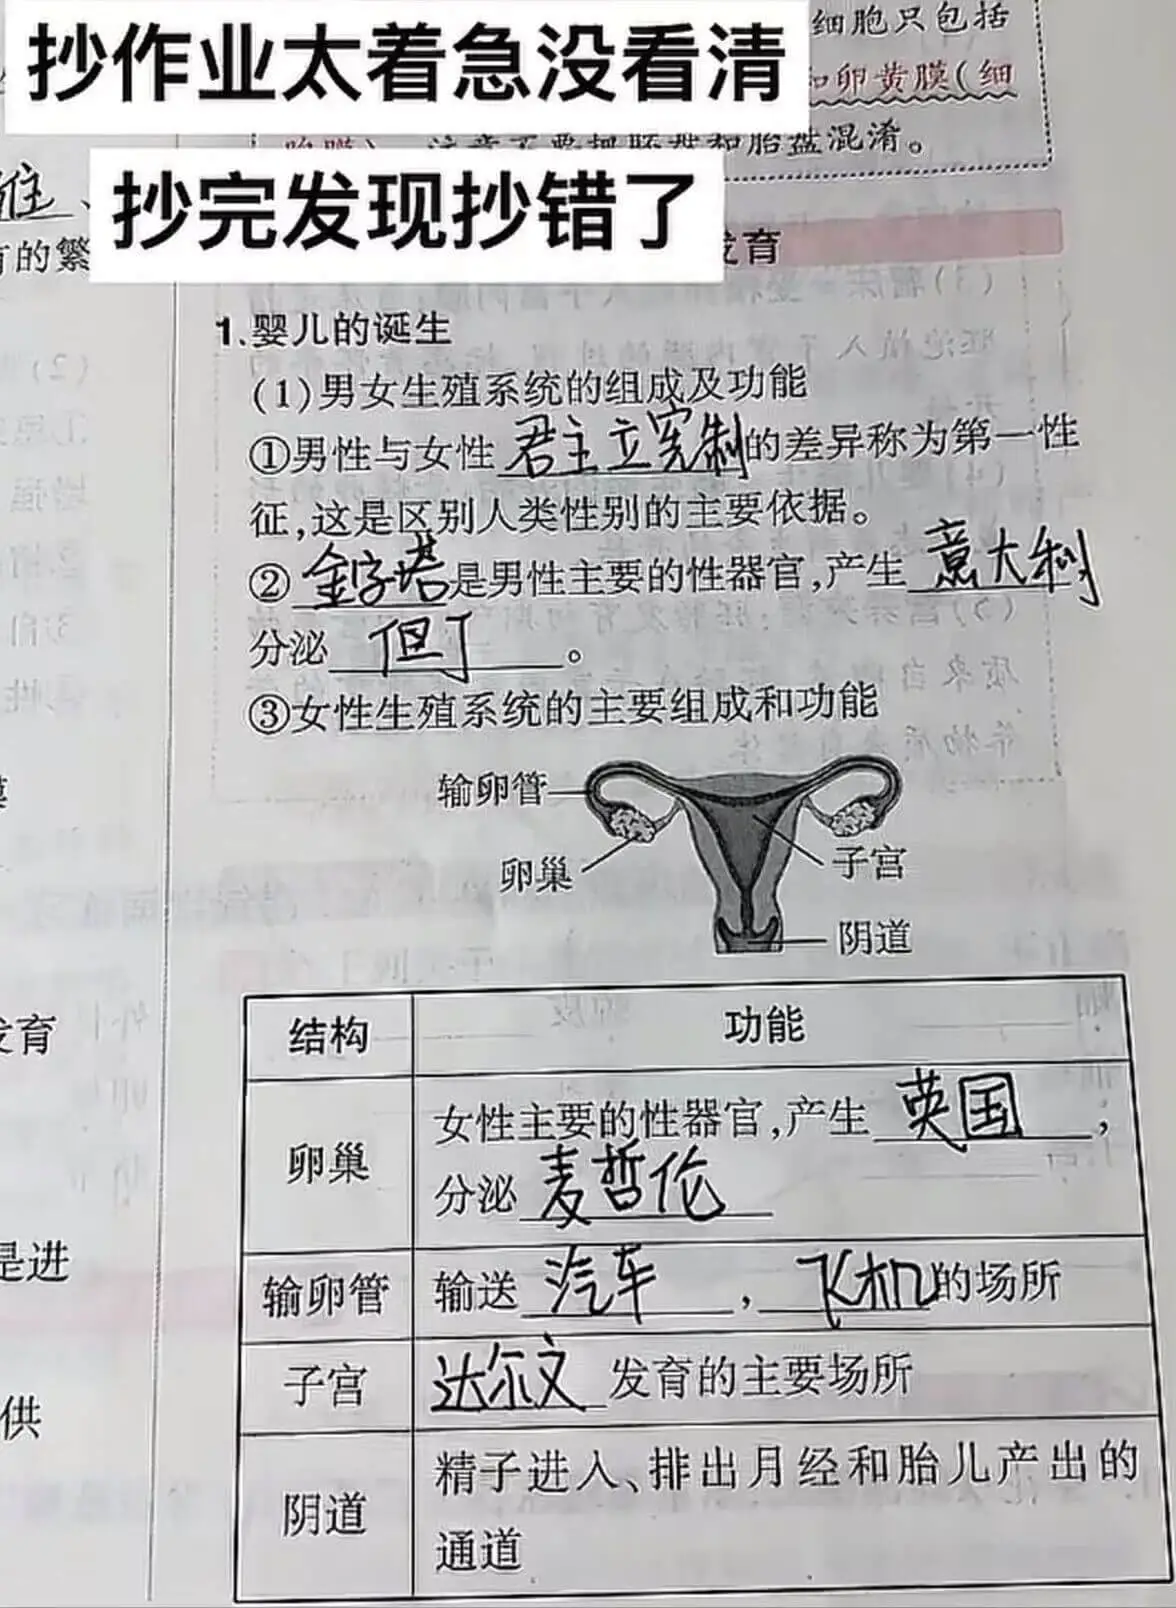 抄作业太着急没看清
抄完发现抄错了
细胞只包括
和卵黄膜(细
胞膜),注意不要把胚盘和胎盘混淆。
住、
有的繁
发育
1.婴儿的诞生
(1)男女生殖系统的组成及功能
①男性与女性君主立宪制的差异称为第一性
征,这是区别人类性别的主要依据。
②金字塔是男性主要的性器官,产生意大利
分泌但丁。
③女性生殖系统的主要组成和功能
输卵管
卵巢
子宫
阴道
结构 功能
卵巢 女性主要的性器官,产生英国,
分泌麦哲伦
输卵管 输送汽车,飞机的场所
子宫 达尔文发育的主要场所
阴道 精子进入、排出月经和胎儿产出的
通道
发育
是进
供